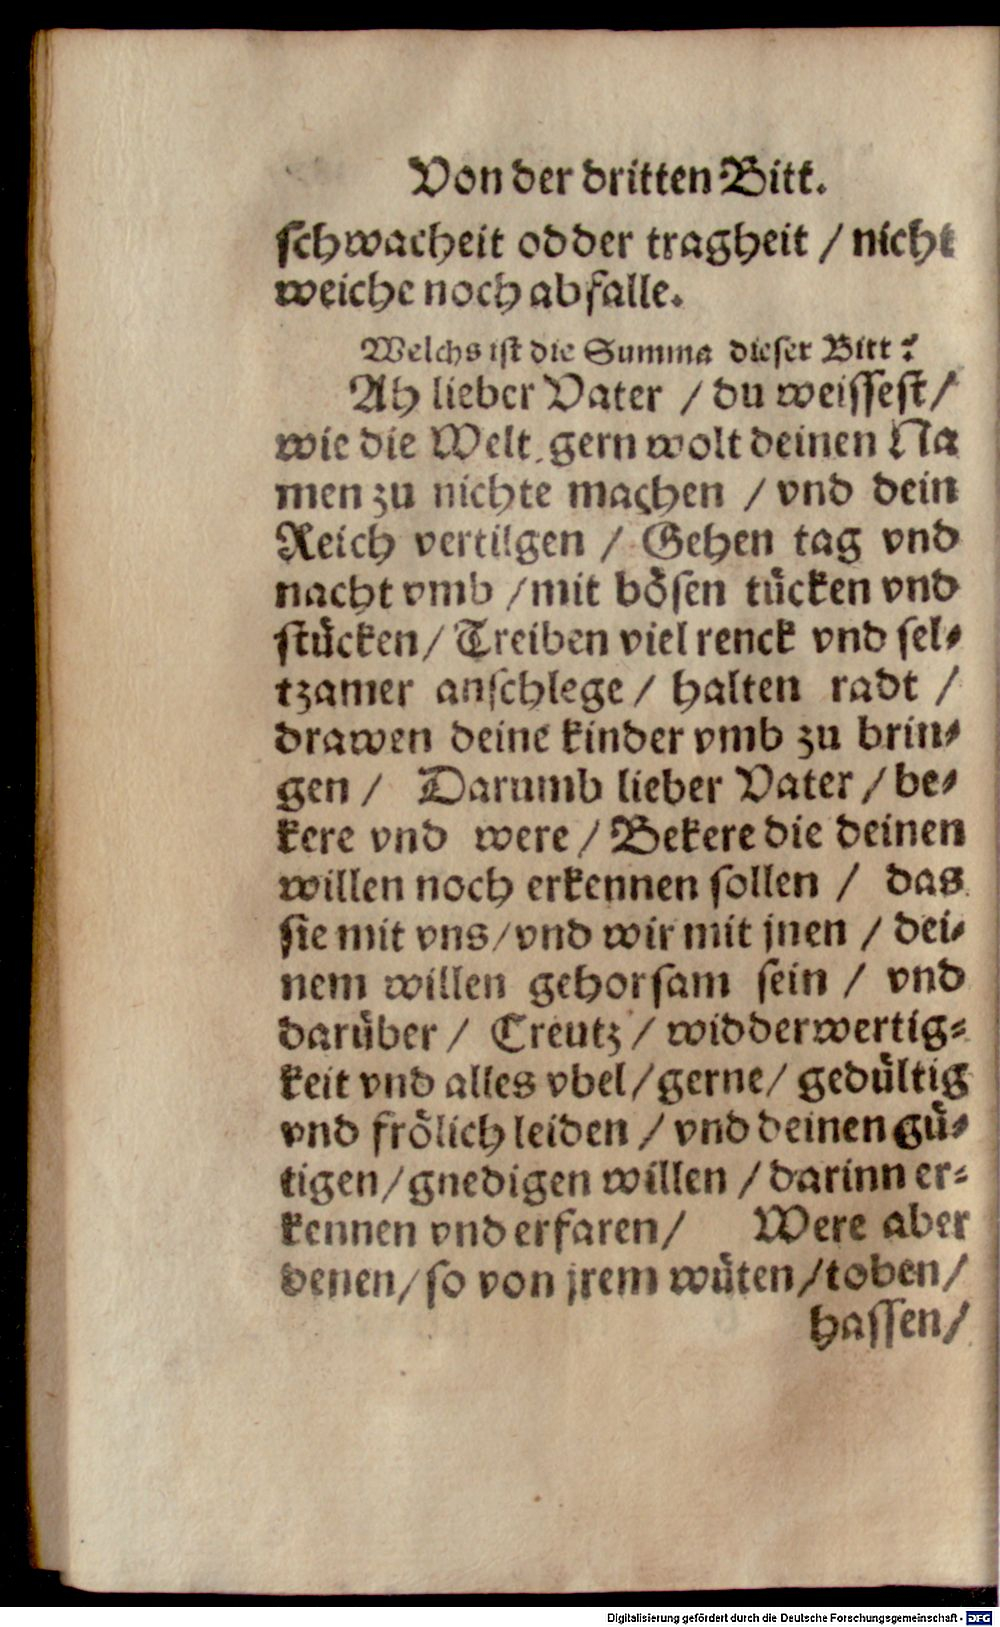 Von der dritten Bitt.
schwacheit odder tragheit / nicht
weiche noch abfalle.
Welchs ist die Summa dieser Bitt?
Ah lieber Vater / du weissest /
wie die Welt gern wolt deinen Na
men zu nichte machen / vnd dein
Reich vertilgen / Gehen tag vnd
nacht vmb / mit bösen tücken vnd
stücken / Treiben viel renck vnd sel-
tzamer anschlege / halten radt /
drawen deine kinder vmb zu brin-
gen / Darumb lieber Vater / be-
kere vnd were / Bekere die deinen
willen noch erkennen sollen / das
sie mit vns / vnd wir mit jnen / dei-
nem willen gehorsam sein / vnd
darüber / Creutz / widderwertig-
keit vnd alles vbel / gerne / gedültig
vnd frölich leiden / vnd deinen gü-
tigen / gnedigen willen / darinn er-
kennen vnd erfaren / Were aber
denen / so von jrem wüten / toben /
hassen /
Digitalisierung gefördert durch die Deutsche Forschungsgemeinschaft - DFG